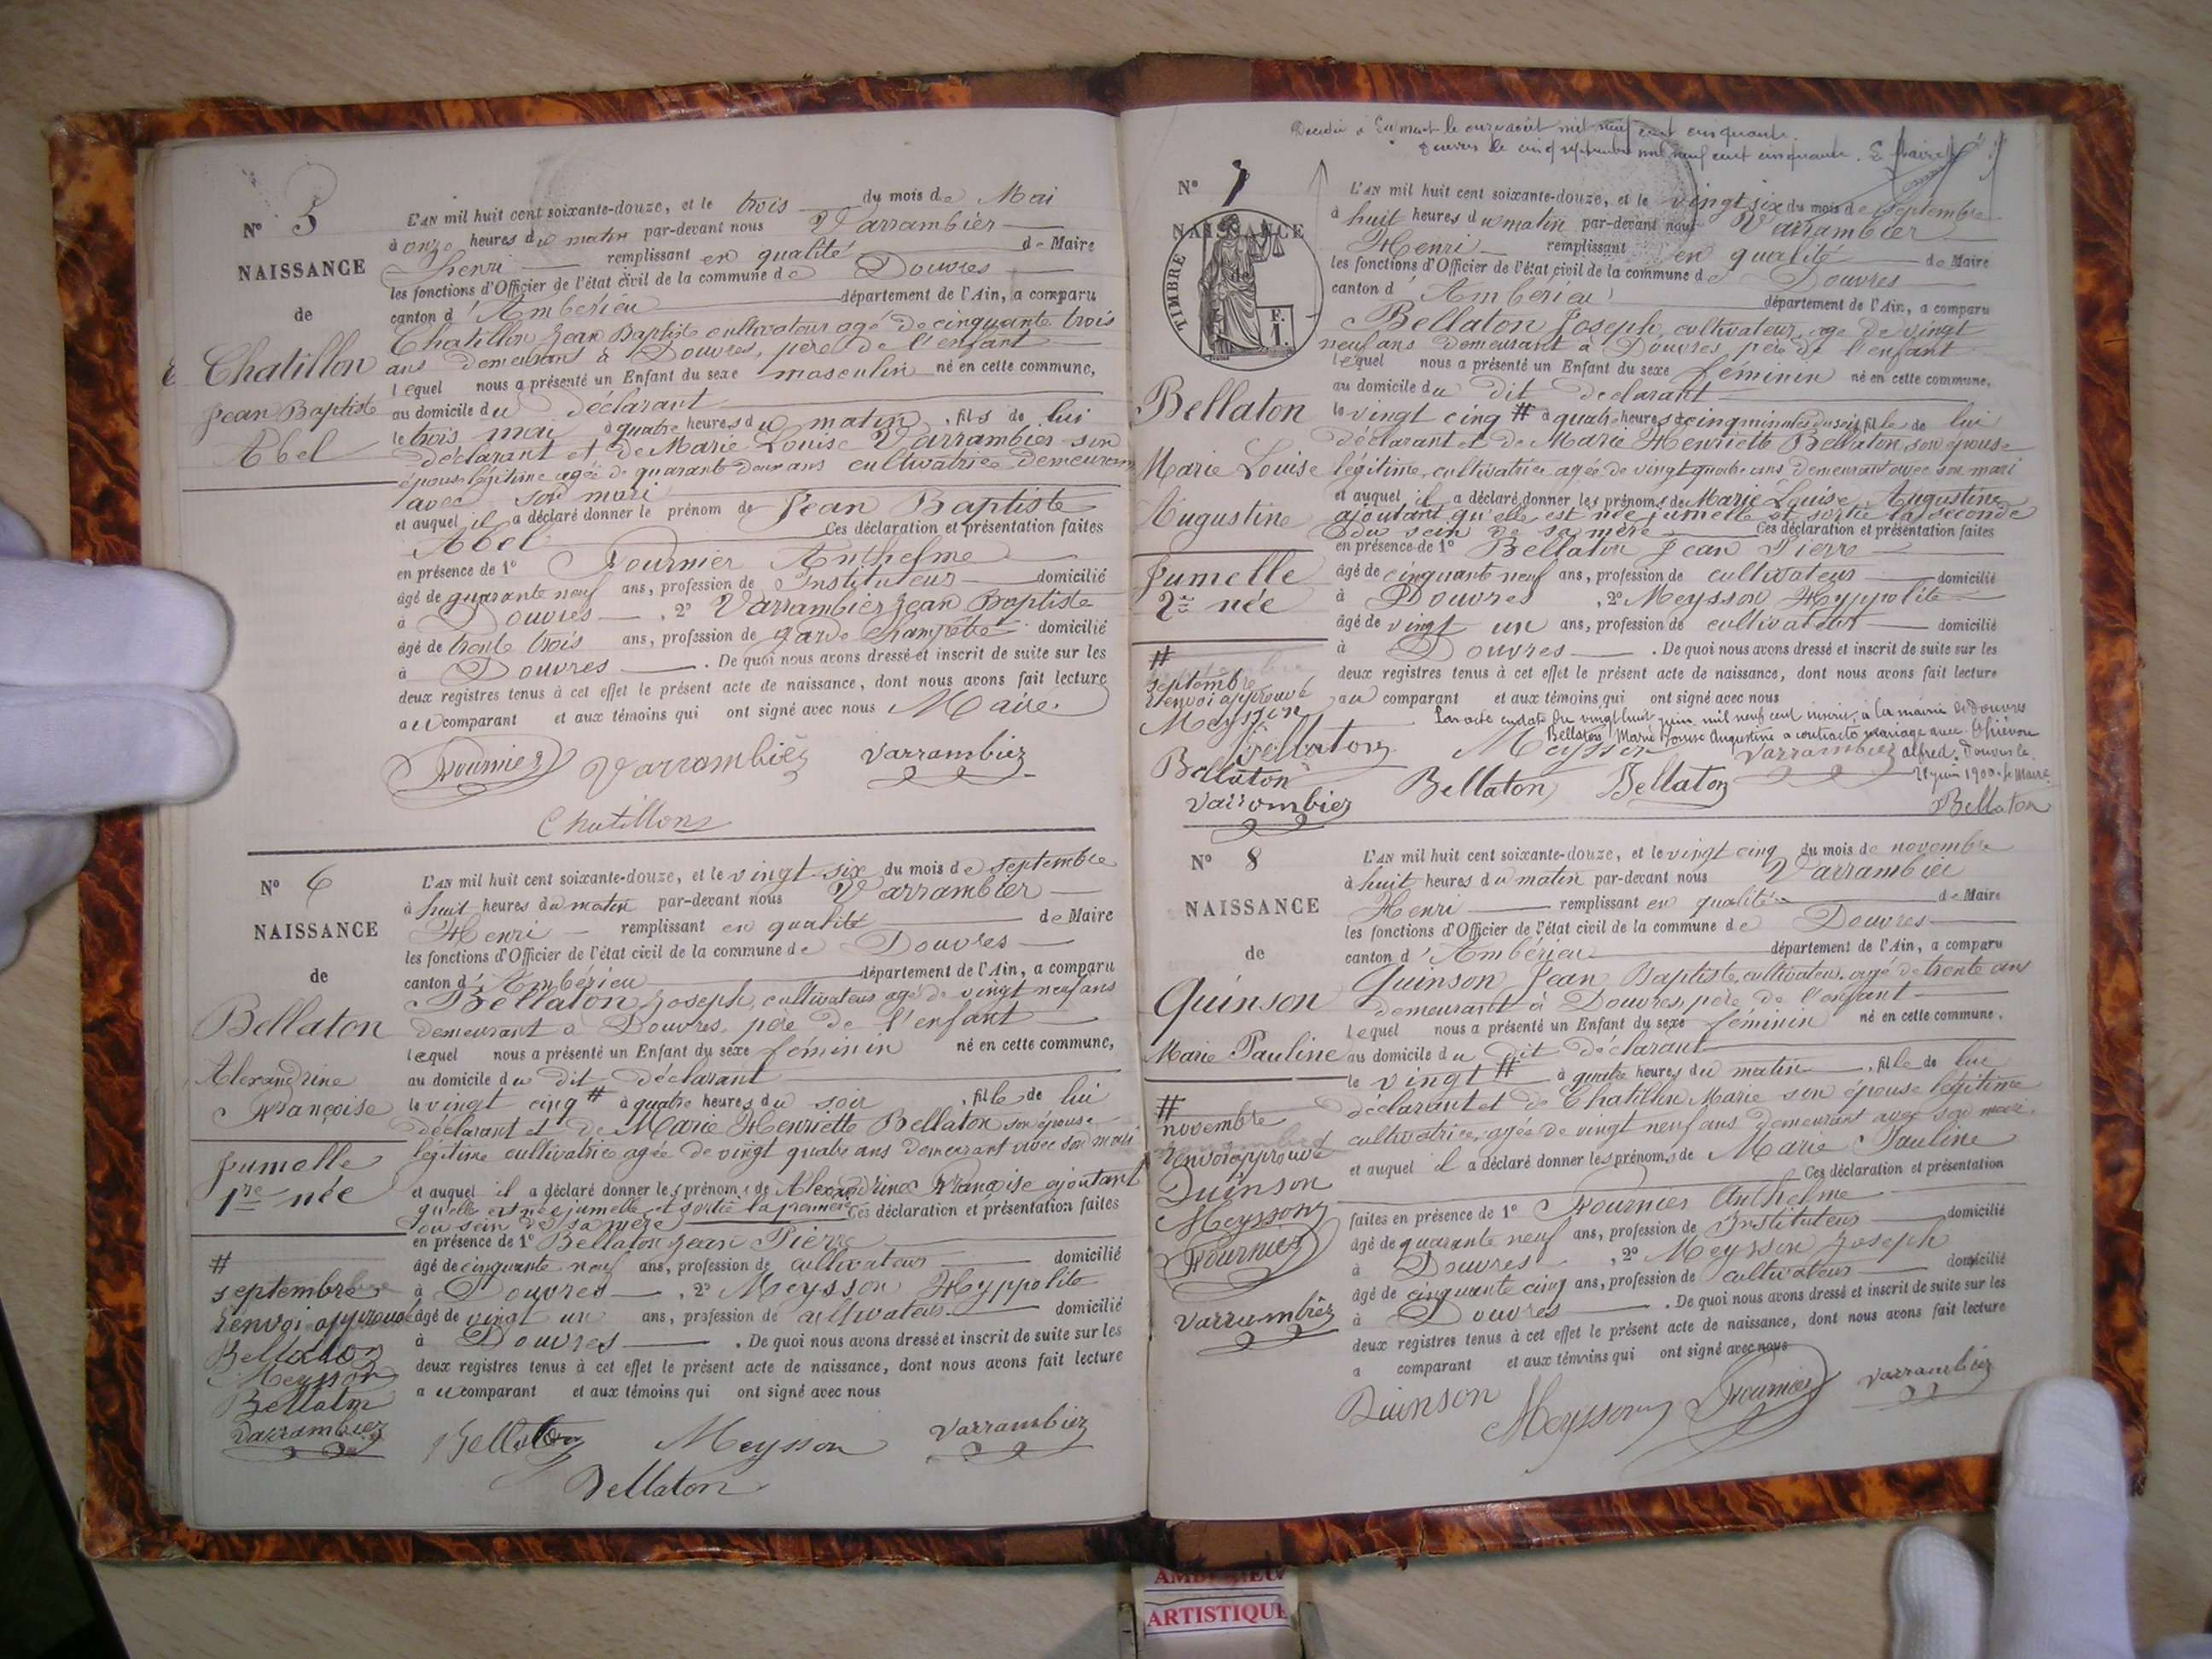 N° 5
NAISSANCE
de
Chatillon
Jean Baptiste
Abel
L'AN mil huit cent soixante-douze, et le trois du mois de Mai
à onze heures du matin par-devant nous Varrambier
henri remplissant en qualité de Maire
les fonctions d'Officier de l'état civil de la commune de Douvres
canton d'Ambérieu département de l'Ain, a comparu
Chatillon Jean Baptiste cultivateur agé de cinquante trois
ans demeurant à Douvres, père de l'enfant
lequel nous a présenté un Enfant du sexe masculin né en cette commune,
au domicile du déclarant
le trois mai à quatre heures du matin, fils de lui
déclarant et de Marie Louise Varrambier son
épouse légitime agée de quarante deux ans cultivatrice demeurant
avec son mari
et auquel il a déclaré donner le prénom de Jean Baptiste
Abel Ces déclaration et présentation faites
en présence de 1° Fournier Anthelme
âgé de quarante neuf ans, profession de Instituteur domicilié
à Douvres, 2° Varrambier Jean Baptiste
âgé de trente trois ans, profession de garde champêtre domicilié
à Douvres. De quoi nous avons dressé et inscrit de suite sur les
deux registres tenus à cet effet le présent acte de naissance, dont nous avons fait lecture
au comparant et aux témoins qui ont signé avec nous Maire
Fournier Varrambier Varrambier
Chatillon
N° 6
NAISSANCE
de
Bellaton
Alexandrine
Françoise
Jumelle
1re née
#
septembre
renvoi approuvé
Bellaton
Meysson
Bellaton
Varrambier
L'AN mil huit cent soixante-douze, et le vingt six du mois de septembre
à huit heures du matin par-devant nous Varrambier
Henri remplissant en qualité de Maire
les fonctions d'Officier de l'état civil de la commune de Douvres
canton d'Ambérieu département de l'Ain, a comparu
Bellaton Joseph, cultivateur agé de vingt neuf ans
demeurant à Douvres, père de l'enfant
lequel nous a présenté un Enfant du sexe féminin né en cette commune,
au domicile du dit déclarant
le vingt cinq # à quatre heures du soir, fille de lui
déclarant et de Marie Henriette Bellaton son épouse
légitime cultivatrice agée de vingt quatre ans demeurant avec son mari
et auquel il a déclaré donner les prénoms de Alexandrine Françoise ajoutant
qu'elle est née jumelle et sortie la première
du sein de sa mère Ces déclaration et présentation faites
en présence de 1° Bellaton Jean Pierre
âgé de cinquante neuf ans, profession de cultivateur domicilié
à Douvres, 2° Meysson Hyppolite
âgé de vingt un ans, profession de cultivateur domicilié
à Douvres. De quoi nous avons dressé et inscrit de suite sur les
deux registres tenus à cet effet le présent acte de naissance, dont nous avons fait lecture
au comparant et aux témoins qui ont signé avec nous
Bellaton Meysson Varrambier
Bellaton
le onze août mil neuf cent cinquante.
le cinq septembre mil neuf cent cinquante.
N° 7
NAISSANCE
TIMBRE
F.
1.
Bellaton
Marie Louise
Augustine
Jumelle
2me née
#
septembre
renvoi approuvé
Meysson
Bellaton
Bellaton
Varrambier
L'AN mil huit cent soixante-douze, et le vingt six du mois de septembre
à huit heures du matin par-devant nous Varrambier
Henri remplissant en qualité de Maire
les fonctions d'Officier de l'état civil de la commune de Douvres
canton d'Ambérieu département de l'Ain, a comparu
Bellaton Joseph, cultivateur, agé de vingt
neuf ans demeurant à Douvres père de l'enfant
lequel nous a présenté un Enfant du sexe féminin né en cette commune,
au domicile du dit déclarant
le vingt cinq # à quatre heures cinq minutes du soir fille de lui
déclarant et de Marie Henriette Bellaton, son épouse
légitime, cultivatrice agée de vingt quatre ans demeurant avec son mari
et auquel il a déclaré donner les prénoms de Marie Louise Augustine
ajoutant qu'elle est née jumelle et sortie la seconde
du sein de sa mère Ces déclaration et présentation faites
en présence de 1° Bellaton Jean Pierre
âgé de cinquante neuf ans, profession de cultivateur domicilié
à Douvres, 2° Meysson Hyppolite
âgé de vingt un ans, profession de cultivateur domicilié
à Douvres. De quoi nous avons dressé et inscrit de suite sur les
deux registres tenus à cet effet le présent acte de naissance, dont nous avons fait lecture
au comparant et aux témoins qui ont signé avec nous
Par acte en date du vingt huit juin mil neuf cent inscrit à la mairie de Douvres
Bellaton Marie Louise Augustine a contracté mariage avec
alfred. Douvres le
28 juin 1900. le Maire
Bellaton
Meysson Varrambier
Bellaton Bellaton
N° 8
NAISSANCE
de
Quinson
Marie Pauline
#
novembre
renvoi approuvé
Quinson
Meysson
Fournier
Varrambier
L'AN mil huit cent soixante-douze, et le vingt cinq du mois de novembre
à huit heures du matin par-devant nous Varrambier
Henri remplissant en qualité de Maire
les fonctions d'Officier de l'état civil de la commune de Douvres
canton d'Ambérieu département de l'Ain, a comparu
Quinson Jean Baptiste, cultivateur, agé de trente ans
demeurant à Douvres, père de l'enfant
lequel nous a présenté un Enfant du sexe féminin né en cette commune,
au domicile du dit déclarant
le vingt # à quatre heures du matin, fille de lui
déclarant et de Chatillon Marie son épouse légitime
cultivatrice, agée de vingt neuf ans demeurant avec son mari.
et auquel il a déclaré donner les prénoms de Marie Pauline
Ces déclaration et présentation
faites en présence de 1° Fournier Anthelme
âgé de quarante neuf ans, profession de Instituteur domicilié
à Douvres, 2° Meysson Joseph
âgé de cinquante cinq ans, profession de cultivateur domicilié
à Douvres. De quoi nous avons dressé et inscrit de suite sur les
deux registres tenus à cet effet le présent acte de naissance, dont nous avons fait lecture
a comparant et aux témoins qui ont signé avec nous
Quinson Meysson Fournier Varrambier
ARTISTIQUE